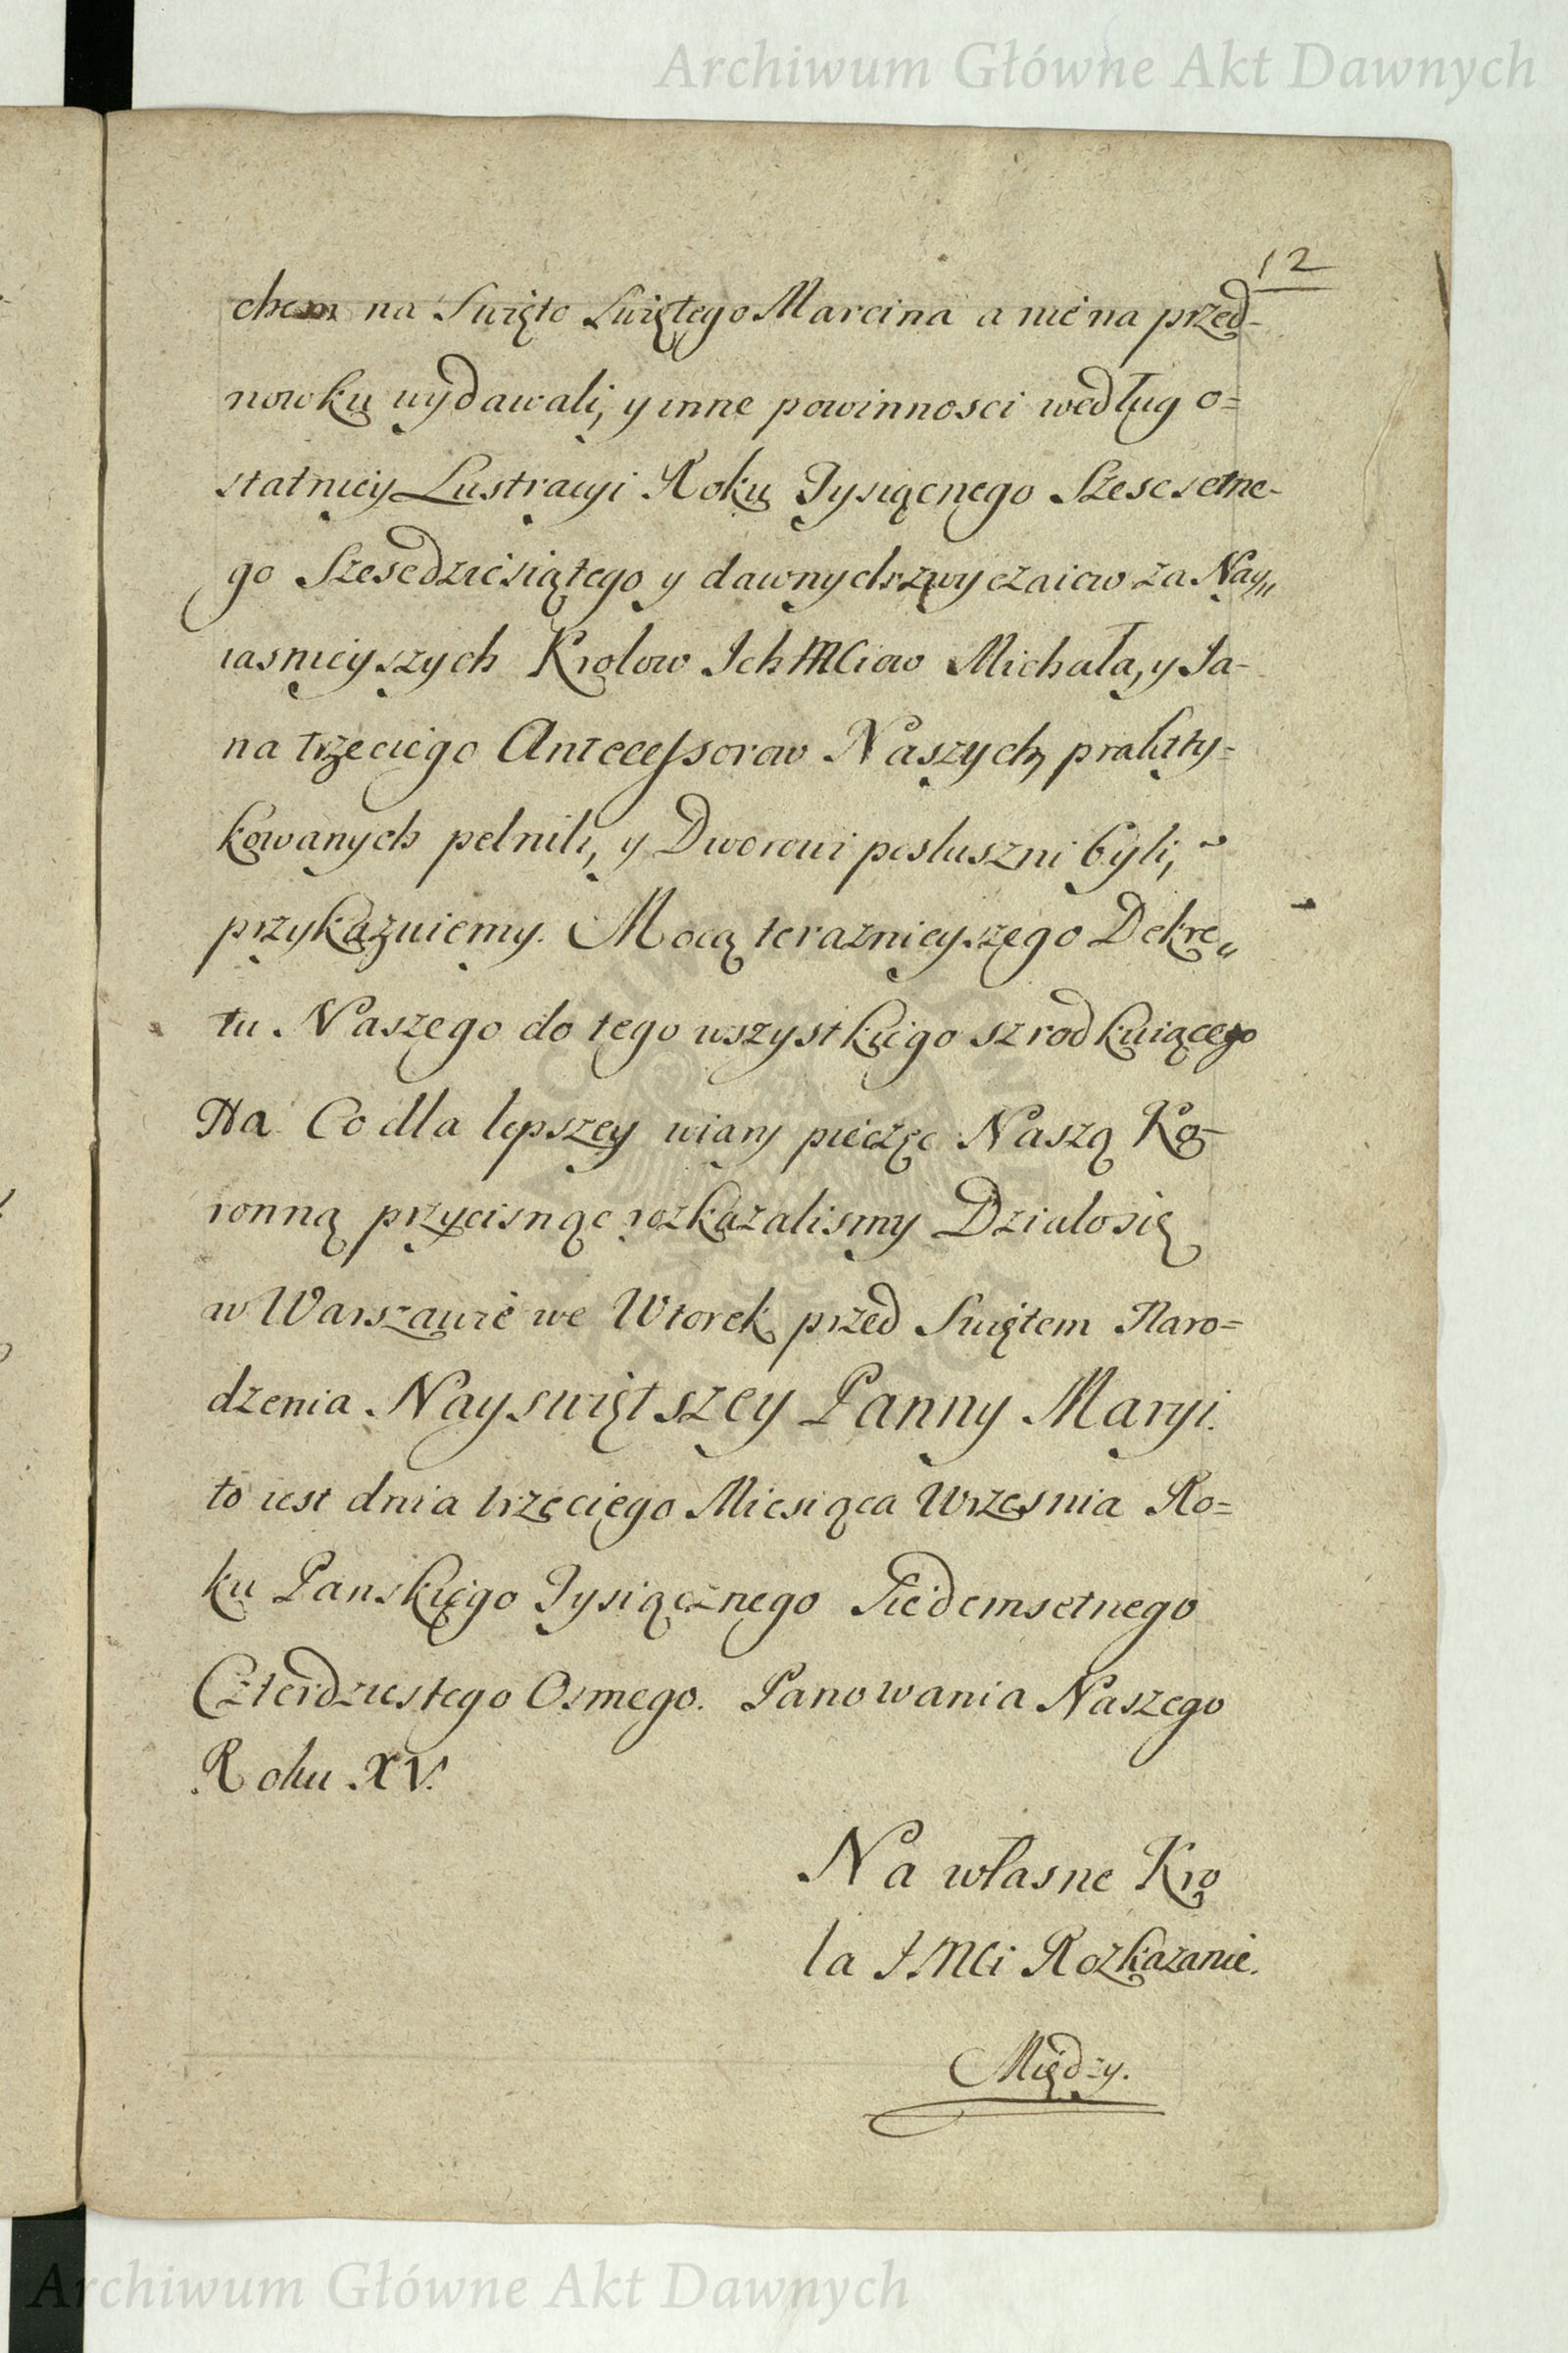 Archiwum Główne Akt Dawnych
12
chem na Swięto Swiętego Marcina a nie na przed-
nowku wydawali, y inne powinnosci według o=
statniey Lustracyi Roku Tysiącnego Szescsetne-
go Szescdziesiątego y dawnych zwyczaiow za Nay„
iasnieyszych Krolow Ich Mciow Michała, y Ja-
na trzeciego Antecessorow Naszych, prakty=
kowanych pelnili, y Dworowi posluszni byli,
przykazuiemy. Mocą teraznieyszego Dekre„
tu Naszego do tego wszystkiego szrodkuiącego
Na Co dla lepszey wiary pieczęc Naszą Ko-
ronną przycisnąc rozkazalismy Dzialosię
w Warszawie we Wtorek przed Swiętem Naro=
dzenia Nayswiętszey Panny Maryi.
to iest dnia trzeciego Miesiąca Wrzesnia Ro=
ku Panskiego Tysiącznego Siedemsetnego
Czterdziestego Osmego. Panowania Naszego
Roku XV.
Na własne Kro
la JMCi Rozkazanie.
Między.
Archiwum Główne Akt Dawnych